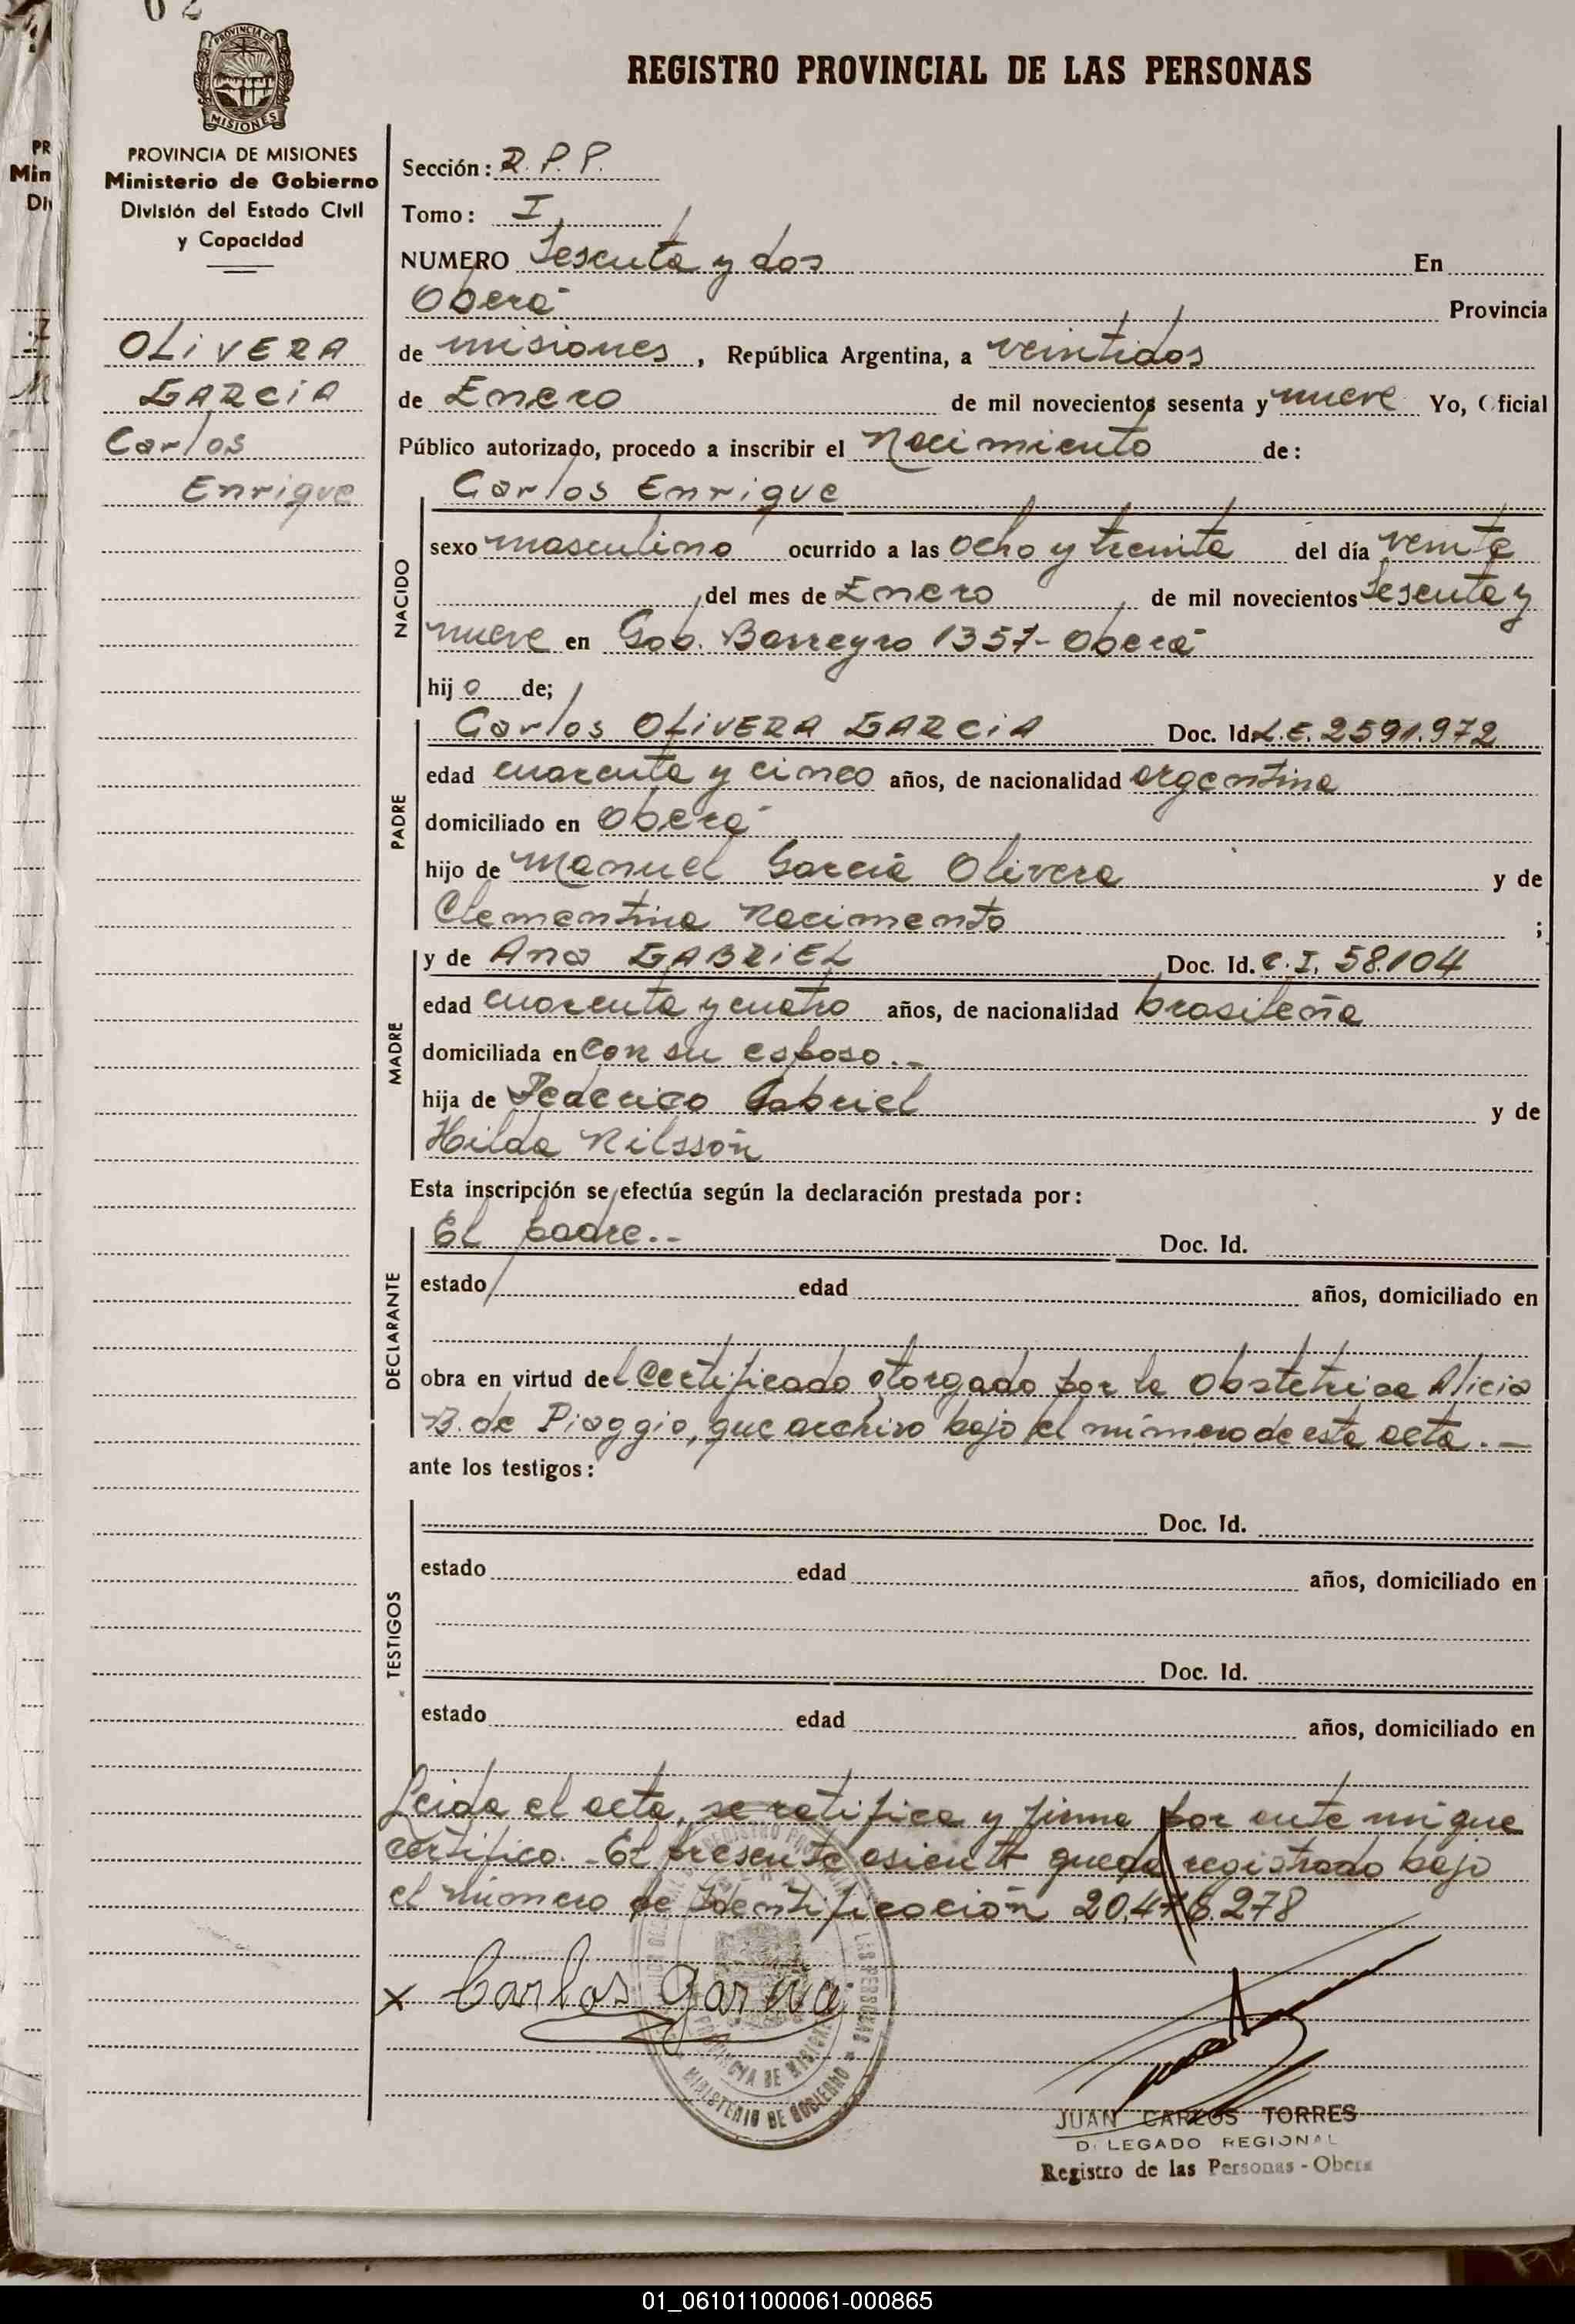 62
PROVINCIA DE
MISIONES
PROVINCIA DE MISIONES
Ministerio de Gobierno
División del Estado Civil
y Capacidad
OLIVERA
GARCIA
Carlos
Enrique
REGISTRO PROVINCIAL DE LAS PERSONAS
Sección: R.P.P.
Tomo: I
NUMERO Sesenta y dos En
Oberá Provincia
de misiones, República Argentina, a veintidos
de Enero de mil novecientos sesenta y nueve Yo, Oficial
Público autorizado, procedo a inscribir el Nacimiento de:
Carlos Enrique
NACIDO
sexo masculino ocurrido a las Ocho y treinta del día veinte
del mes de Enero de mil novecientos Sesenta y
nueve en Gob. Barreyro 1357- Oberá
hijo de;
PADRE
Carlos OLIVERA GARCIA Doc. Id. L.E. 2591.972
edad cuarenta y cinco años, de nacionalidad argentina
domiciliado en Oberá
hijo de Manuel García Olivera y de
Clementina Nacimento ;
MADRE
y de Ana GABRIEL Doc. Id. C.I. 58.104
edad cuarenta y cuatro años, de nacionalidad brasileña
domiciliada en con su esposo.-
hija de Federico Gabriel y de
Hilda Nilssón
Esta inscripción se efectúa según la declaración prestada por:
DECLARANTE
El padre.-- Doc. Id.
estado edad años, domiciliado en
obra en virtud del Certificado otorgado por la Obstetrica Alicia
B. de Piaggio, que archivo bajo el número de esta acta.-
ante los testigos:
TESTIGOS
Doc. Id.
estado edad años, domiciliado en
Doc. Id.
estado edad años, domiciliado en
Leida el acta, se ratifica y firma por ante mi que
certifico.-El presente asiento queda registrado bajo
el número de Identificación 20.476.278
x Carlos Garcia
PROVINCIA DE MISIONES
MINISTERIO DE GOBIERNO
JUAN CARLOS TORRES
DELEGADO REGIONAL
Registro de las Personas - Oberá
01_061011000061-000865